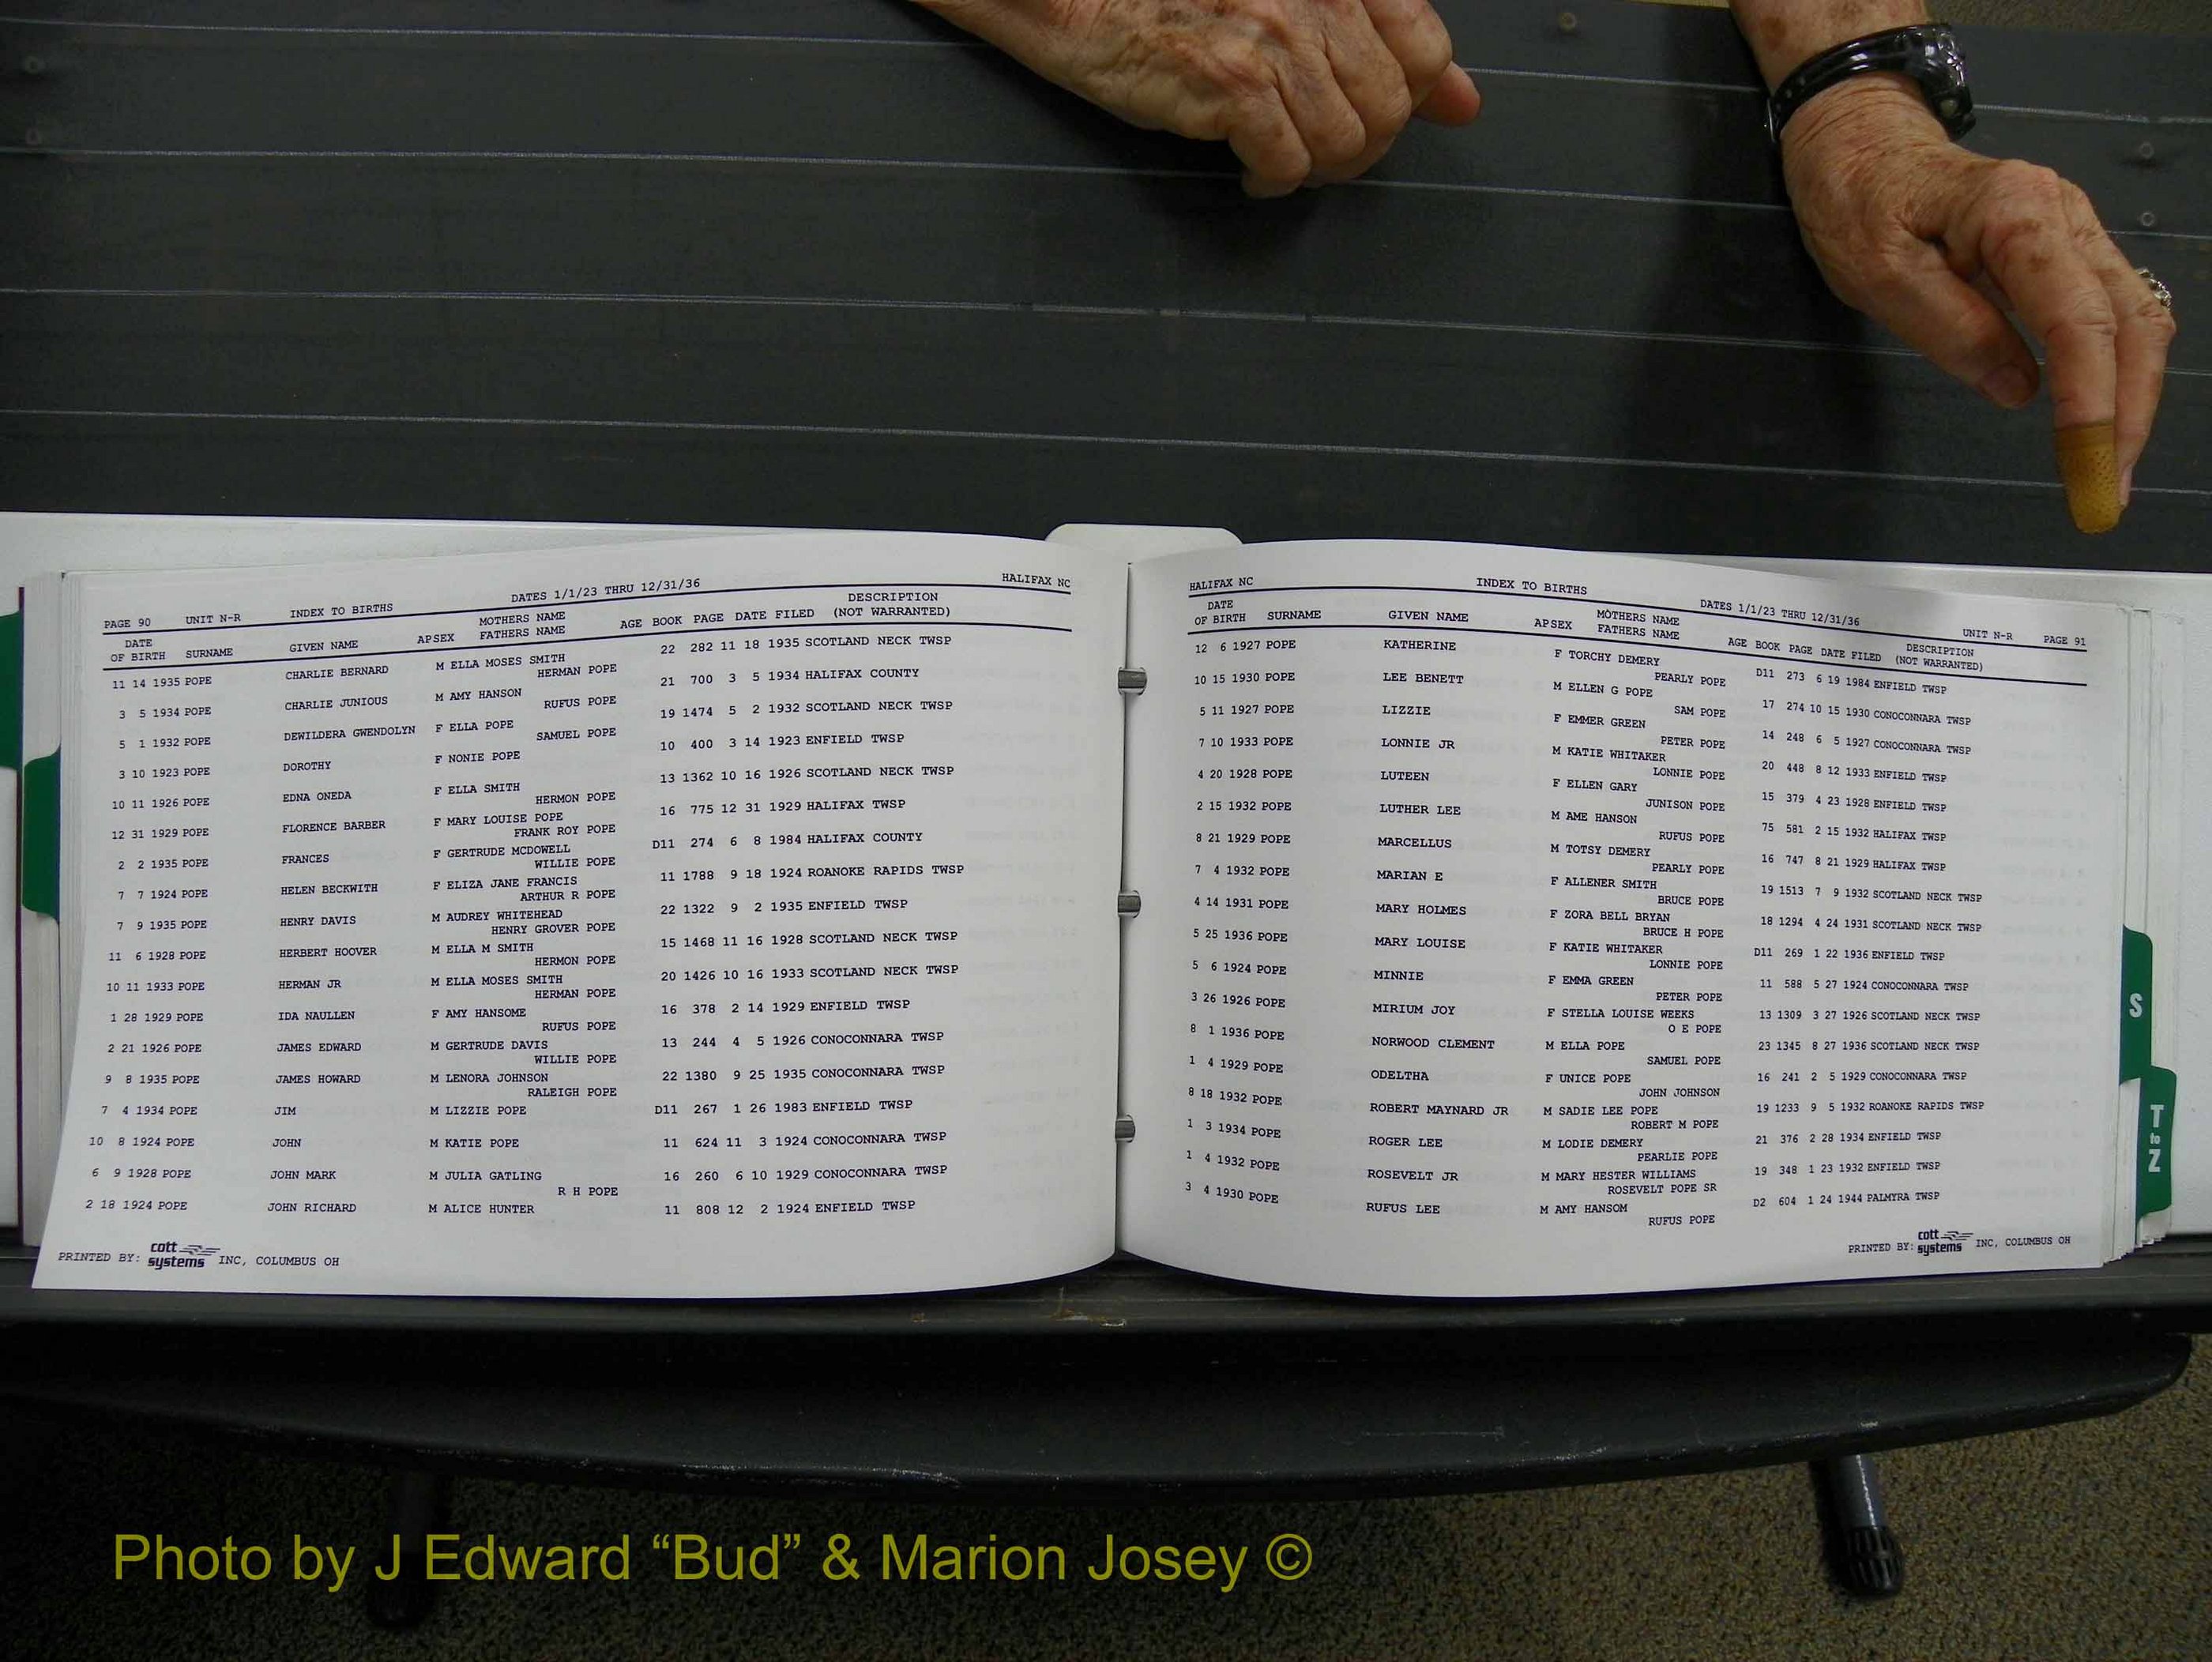 PAGE 90 UNIT N-R INDEX TO BIRTHS DATES 1/1/23 THRU 12/31/36 HALIFAX NC
DATE OF BIRTH SURNAME GIVEN NAME AP SEX MOTHERS NAME FATHERS NAME AGE BOOK PAGE DATE FILED DESCRIPTION (NOT WARRANTED)
11 14 1935 POPE CHARLIE BERNARD M ELLA MOSES SMITH 22 282 11 18 1935 SCOTLAND NECK TWSP
HERMAN POPE
3 5 1934 POPE CHARLIE JUNIOUS M AMY HANSON 21 700 3 5 1934 HALIFAX COUNTY
RUFUS POPE
5 1 1932 POPE DEWILDERA GWENDOLYN F ELLA POPE 19 1474 5 2 1932 SCOTLAND NECK TWSP
SAMUEL POPE
3 10 1923 POPE DOROTHY F NONIE POPE 10 400 3 14 1923 ENFIELD TWSP
10 11 1926 POPE EDNA ONEDA F ELLA SMITH 13 1362 10 16 1926 SCOTLAND NECK TWSP
HERMON POPE
12 31 1929 POPE FLORENCE BARBER F MARY LOUISE POPE 16 775 12 31 1929 HALIFAX TWSP
FRANK ROY POPE
2 2 1935 POPE FRANCES F GERTRUDE MCDOWELL D11 274 6 8 1984 HALIFAX COUNTY
WILLIE POPE
7 7 1924 POPE HELEN BECKWITH F ELIZA JANE FRANCIS 11 1788 9 18 1924 ROANOKE RAPIDS TWSP
ARTHUR R POPE
7 9 1935 POPE HENRY DAVIS M AUDREY WHITEHEAD 22 1322 9 2 1935 ENFIELD TWSP
HENRY GROVER POPE
11 6 1928 POPE HERBERT HOOVER M ELLA M SMITH 15 1468 11 16 1928 SCOTLAND NECK TWSP
HERMON POPE
10 11 1933 POPE HERMAN JR M ELLA MOSES SMITH 20 1426 10 16 1933 SCOTLAND NECK TWSP
HERMAN POPE
1 28 1929 POPE IDA NAULLEN F AMY HANSOME 16 378 2 14 1929 ENFIELD TWSP
RUFUS POPE
2 21 1926 POPE JAMES EDWARD M GERTRUDE DAVIS 13 244 4 5 1926 CONOCONNARA TWSP
WILLIE POPE
9 8 1935 POPE JAMES HOWARD M LENORA JOHNSON 22 1380 9 25 1935 CONOCONNARA TWSP
RALEIGH POPE
7 4 1934 POPE JIM M LIZZIE POPE D11 267 1 26 1983 ENFIELD TWSP
10 8 1924 POPE JOHN M KATIE POPE 11 624 11 3 1924 CONOCONNARA TWSP
6 9 1928 POPE JOHN MARK M JULIA GATLING 16 260 6 10 1929 CONOCONNARA TWSP
R H POPE
2 18 1924 POPE JOHN RICHARD M ALICE HUNTER 11 808 12 2 1924 ENFIELD TWSP
PRINTED BY: cott systems INC, COLUMBUS OH
HALIFAX NC INDEX TO BIRTHS DATES 1/1/23 THRU 12/31/36 UNIT N-R PAGE 91
DATE OF BIRTH SURNAME GIVEN NAME AP SEX MOTHERS NAME FATHERS NAME AGE BOOK PAGE DATE FILED DESCRIPTION (NOT WARRANTED)
12 6 1927 POPE KATHERINE F TORCHY DEMERY D11 273 6 19 1984 ENFIELD TWSP
PEARLY POPE
10 15 1930 POPE LEE BENETT M ELLEN G POPE 17 274 10 15 1930 CONOCONNARA TWSP
SAM POPE
5 11 1927 POPE LIZZIE F EMMER GREEN 14 248 6 5 1927 CONOCONNARA TWSP
PETER POPE
7 10 1933 POPE LONNIE JR M KATIE WHITAKER 20 448 8 12 1933 ENFIELD TWSP
LONNIE POPE
4 20 1928 POPE LUTEEN F ELLEN GARY 15 379 4 23 1928 ENFIELD TWSP
JUNISON POPE
2 15 1932 POPE LUTHER LEE M AME HANSON 75 581 2 15 1932 HALIFAX TWSP
RUFUS POPE
8 21 1929 POPE MARCELLUS M TOTSY DEMERY 16 747 8 21 1929 HALIFAX TWSP
PEARLY POPE
7 4 1932 POPE MARIAN E F ALLENER SMITH 19 1513 7 9 1932 SCOTLAND NECK TWSP
BRUCE POPE
4 14 1931 POPE MARY HOLMES F ZORA BELL BRYAN 18 1294 4 24 1931 SCOTLAND NECK TWSP
BRUCE H POPE
5 25 1936 POPE MARY LOUISE F KATIE WHITAKER D11 269 1 22 1936 ENFIELD TWSP
LONNIE POPE
5 6 1924 POPE MINNIE F EMMA GREEN 11 588 5 27 1924 CONOCONNARA TWSP
PETER POPE
3 26 1926 POPE MIRIUM JOY F STELLA LOUISE WEEKS 13 1309 3 27 1926 SCOTLAND NECK TWSP
O E POPE
8 1 1936 POPE NORWOOD CLEMENT M ELLA POPE 23 1345 8 27 1936 SCOTLAND NECK TWSP
SAMUEL POPE
1 4 1929 POPE ODELTHA F UNICE POPE 16 241 2 5 1929 CONOCONNARA TWSP
JOHN JOHNSON
8 18 1932 POPE ROBERT MAYNARD JR M SADIE LEE POPE 19 1233 9 5 1932 ROANOKE RAPIDS TWSP
ROBERT M POPE
1 3 1934 POPE ROGER LEE M LODIE DEMERY 21 376 2 28 1934 ENFIELD TWSP
PEARLIE POPE
1 4 1932 POPE ROSEVELT JR M MARY HESTER WILLIAMS 19 348 1 23 1932 ENFIELD TWSP
ROSEVELT POPE SR
3 4 1930 POPE RUFUS LEE M AMY HANSOM D2 604 1 24 1944 PALMYRA TWSP
RUFUS POPE
PRINTED BY: cott systems INC, COLUMBUS OH
S
T to Z
Photo by J Edward “Bud” & Marion Josey ©